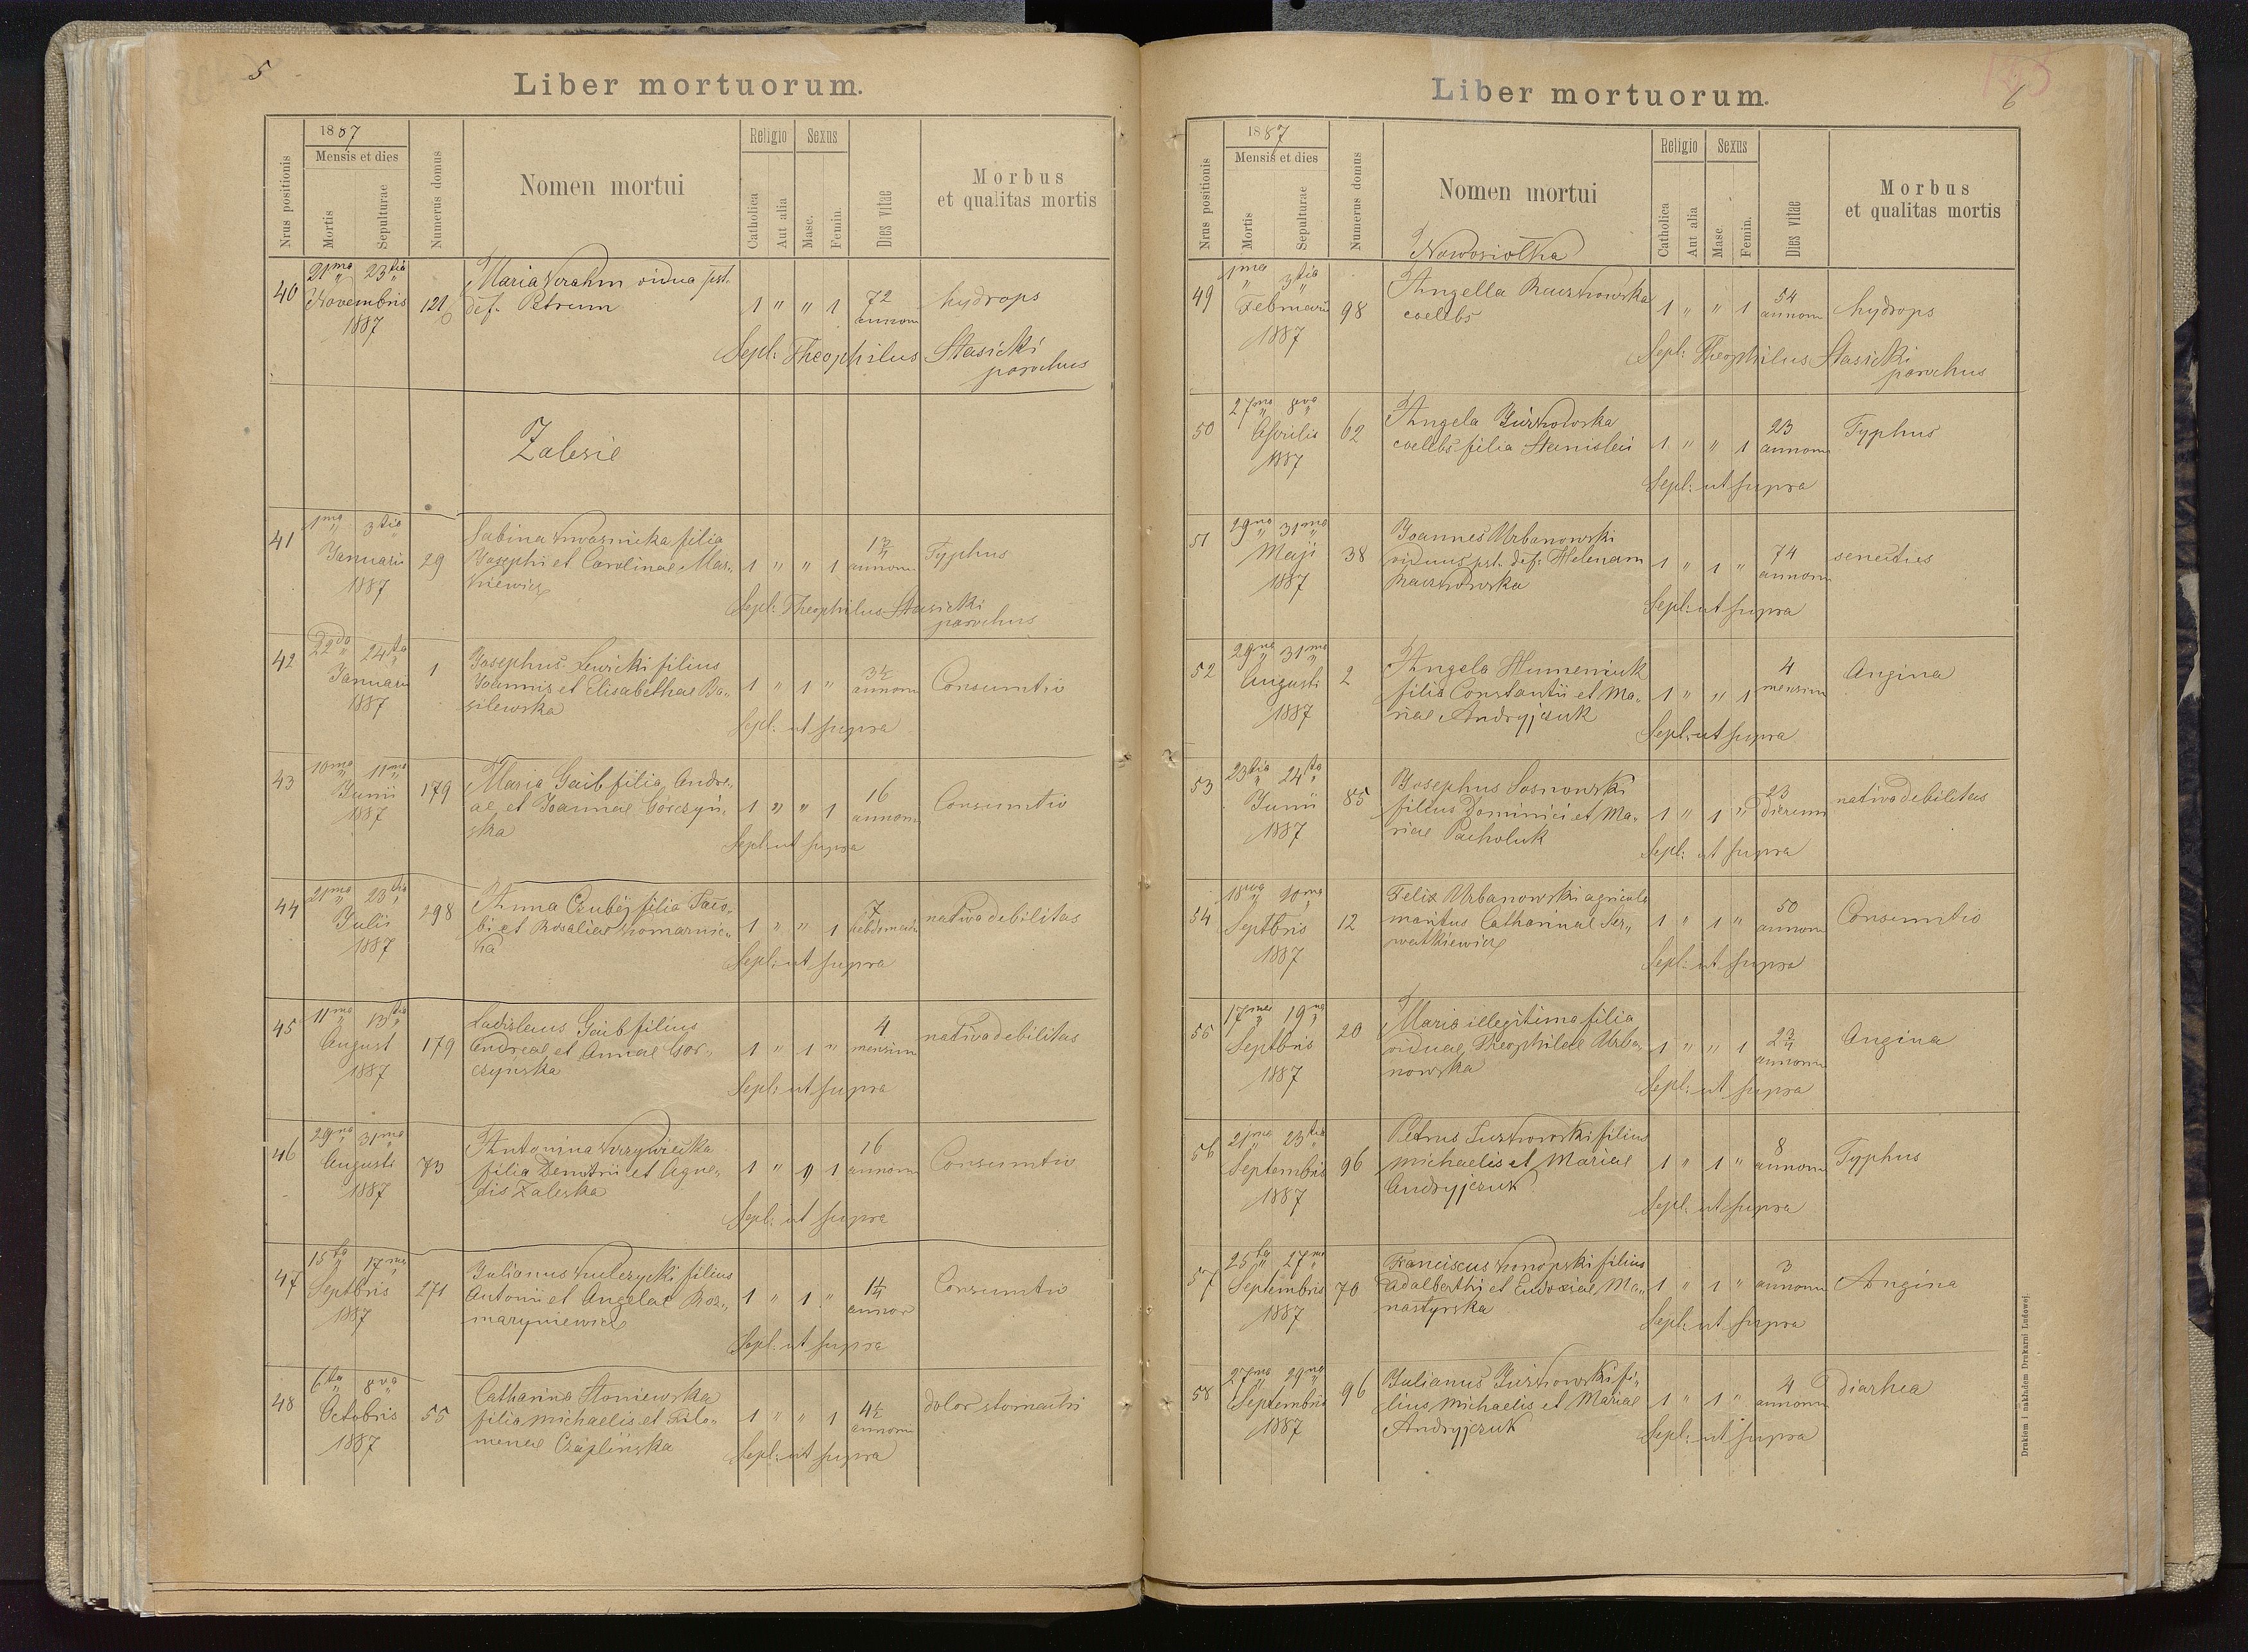 5
Liber mortuorum.
Nrus positionis
1887
Mensis et dies
Mortis
Sepulturae
Numerus domus
Nomen mortui
Religio
Catholica
Aut alia
Sexus
Masc.
Femin.
Dies vitae
Morbus
et qualitas mortis
40 21ma 23tia Maria Krahm vidua pst.
Novembris 121 def. Petrum 1 " " 1 72 hydrops
1887 annorum
Sepl: Theophilus Stasicki
parochus
Zalesie
41 1ma 3tia Sabina Kwasnicka filia
Januarii 29 Josephi et Carolinae Mar- 1 " " 1 1 3/4 annorum Typhus
1887 kiewicz
Sepl: Theophilus Stasicki
parochus
42 22da 24ta Josephus Lewicki filius
Januarii 1 Joannis et Elisabethae Ba- 1 " 1 " 3 1/2 annorum Consumtio
1887 silewska
Sepl: ut supra
43 10ma 11ma Maria Gaib filia Andre-
Junii 179 ae et Joannae Górczyń- 1 " " 1 16 annorum Consumtio
1887 ska
Sepl: ut supra
44 21ma 23tia Anna Czubéj filia Jaco-
Julii 298 bi et Rosaliae Komarnic- 1 " " 1 7 nativa debilitas
1887 ka
Sepl: ut supra
45 11ma 13tia Ladislaus Gaib filius
August 179 Andreae et Annae Gor- 1 " 1 " 4 mensium nativa debilitas
1887 czynska
Sepl: ut supra
46 29na 31ma Antonina Krzywiecka
Augusti 73 filia Demetrii et Agne- 1 " " 1 16 annorum Consumtio
1887 tis Zaleska
Sepl: ut supra
47 15ta 17ma Julianus Kulczycki filius
Septbris 271 Antonii et Angelae Roz- 1 " 1 " 1 1/4 Consumtio
1887 maryniewicz
Sepl: ut supra
48 6ta 8va Catharina Stoniewska
Octobris 55 filia Michaelis et Filo- 1 " " 1 4 1/2 annorum dolor stomachi
1887 menae Czaplinska
Sepl: ut supra
6
Liber mortuorum.
Nrus positionis
1887
Mensis et dies
Mortis
Sepulturae
Numerus domus
Nomen mortui
Nowosiołka
Religio
Catholica
Aut alia
Sexus
Masc.
Femin.
Dies vitae
Morbus
et qualitas mortis
49 1ma 3tia Angella Raczkowska
Februarii 98 coelebs 1 " " 1 54 annorum hydrops
1887
Sepl: Theophilus Stasicki
parochus
50 27ma 8va Angela Jurkowska
Aprilis 62 coelebs filia Stanislai 1 " " 1 23 annorum Typhus
1887
Sepl: ut supra
51 29na 31ma Joannes Urbanowski
Maji 38 viduus pst. def. Helenam 1 " 1 " 74 annorum senectus
1887 Raczkowska
Sepl: ut supra
52 29na 31ma Angela Humeniuk
Augusti 2 filia Constantii et Ma- 1 " " 1 4 mensium Angina
1887 riae Andryjczuk
Sepl: ut supra
53 23tia 24ta Josephus Sosnowski
Junii 85 filius Dominici et Ma- 1 " 1 " 23 dierum nativa debilitas
1887 riae Pacholuk
Sepl: ut supra
54 18va 20ma Felix Urbanowski agricola
Septbris 12 maritus Catharinae Ser- 1 " 1 " 50 annorum Consumtio
1887 watkiewicz
Sepl: ut supra
55 17ma 19na Maria illegitima filia
Septbris 20 viduae Theophilae Urba- 1 " " 1 2 3/4 annorum Angina
1887 nowska
Sepl: ut supra
56 21ma 23tia Petrus Jurkowski filius
Septembris 96 Michaelis et Mariae 1 " 1 " 8 annorum Typhus
1887 Andryjczuk
Sepl: ut supra
57 25ta 27ma Franciscus Konopski filius
Septembris 70 Adalberthi et Eudoxiae Ma- 1 " 1 " 3 annorum Angina
1887 nastyrska
Sepl: ut supra
58 27ma 29na Julianus Jurkowski fi-
Septembris 96 lius Michaelis et Mariae 1 " 1 " 4 annorum Diarhea
1887 Andryjczuk
Sepl: ut supra
Drukiem i nakładem Drukarni Ludowej.